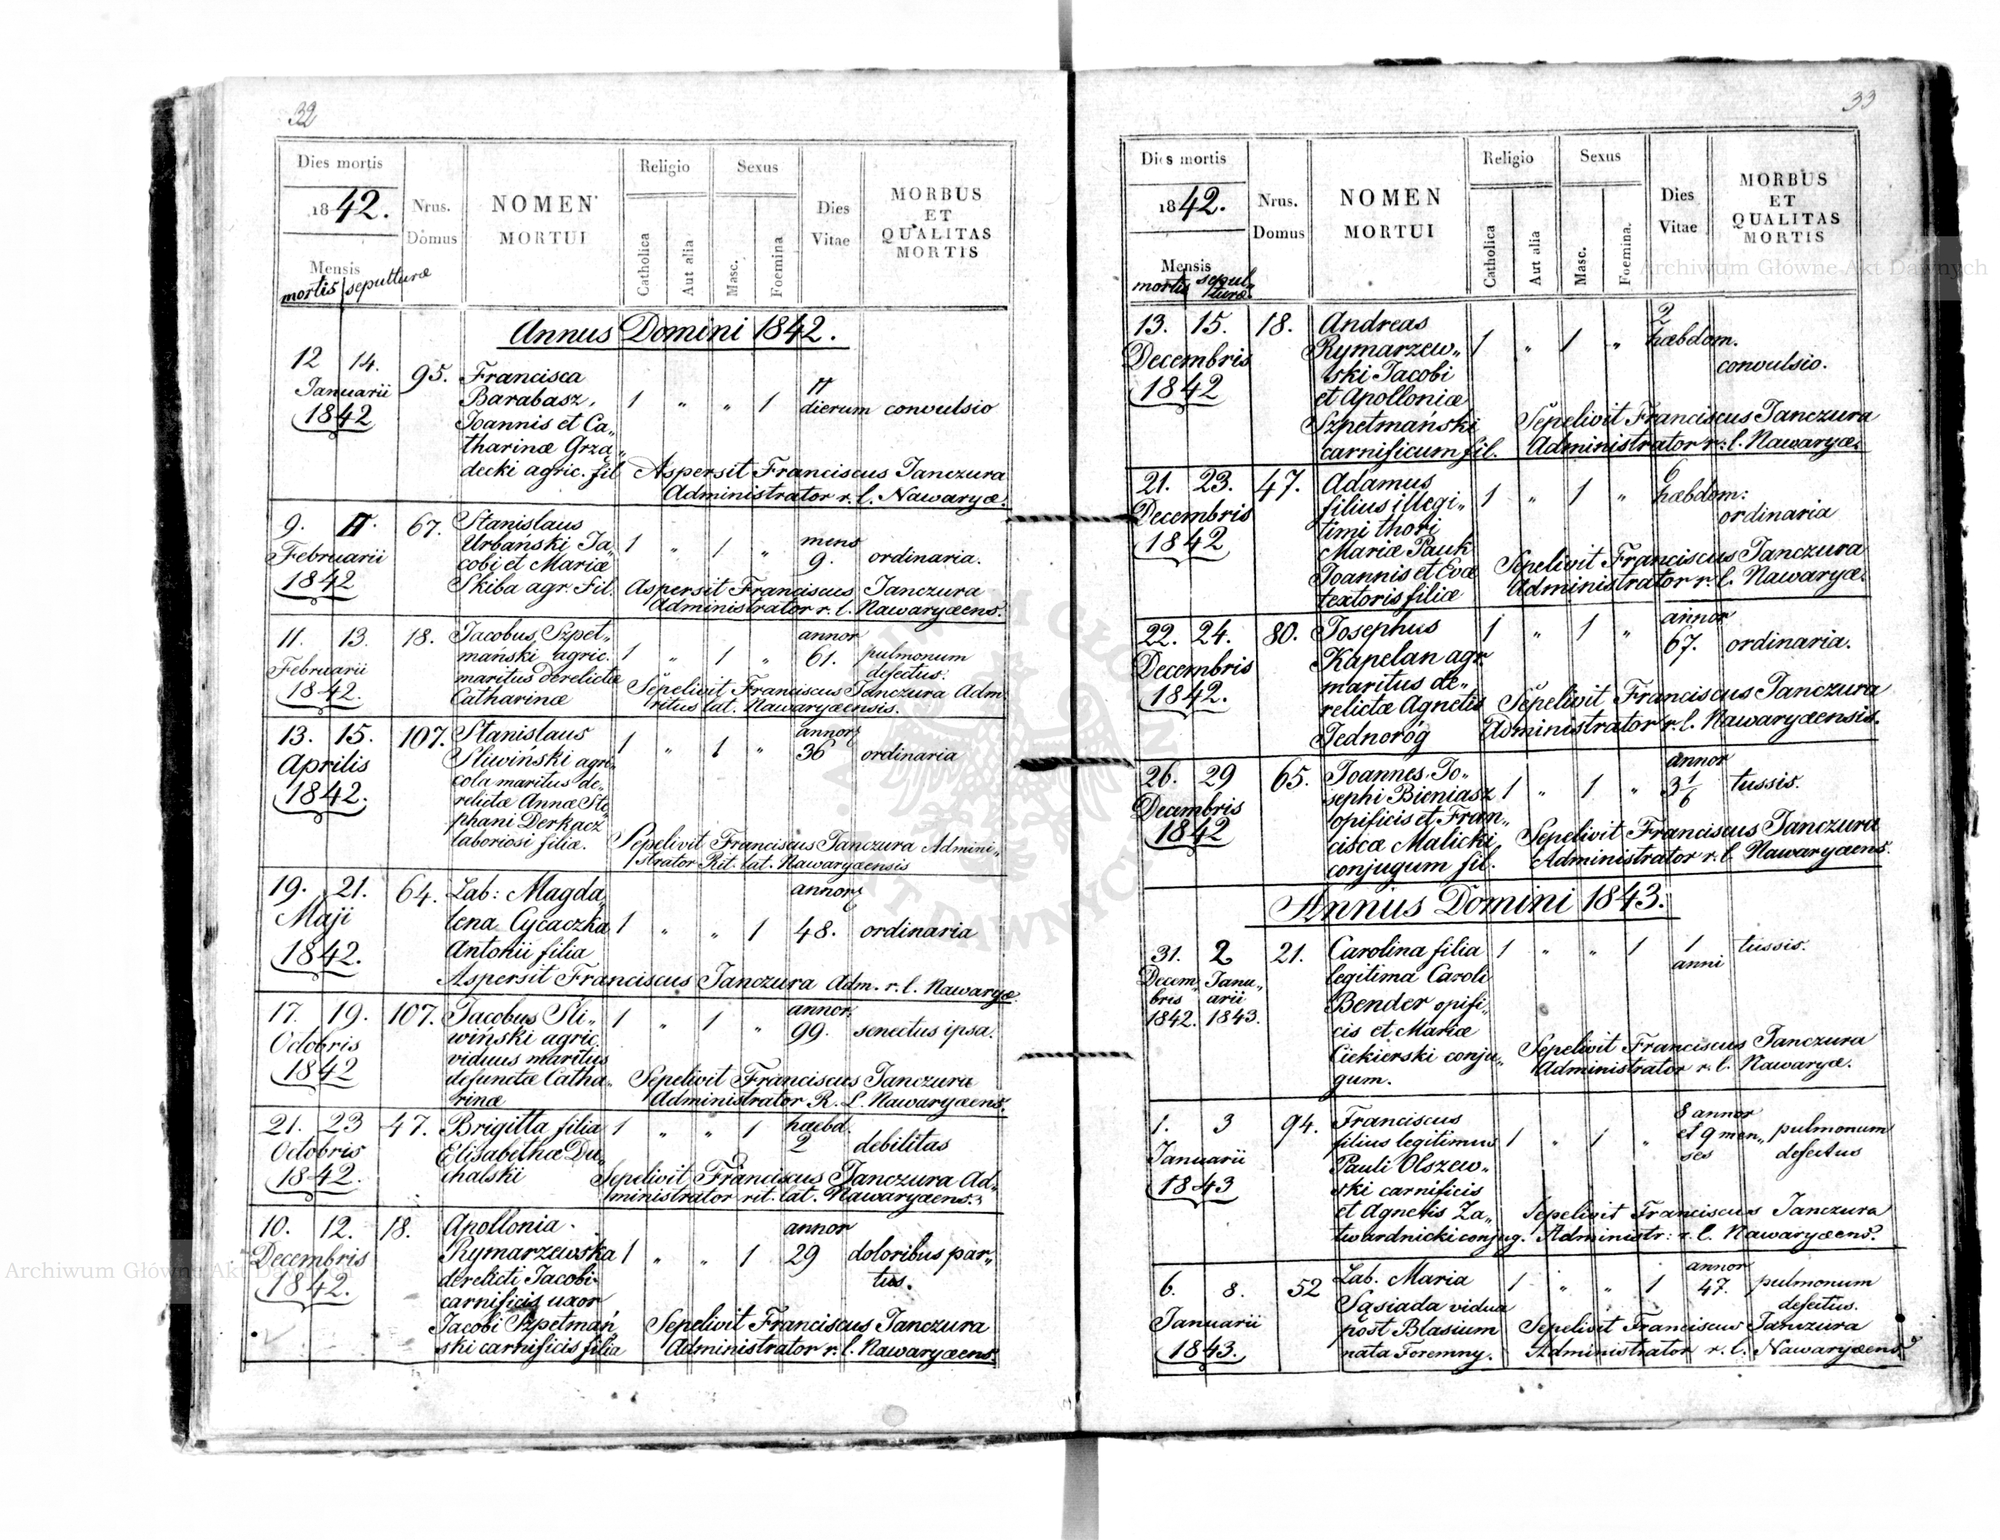 32
Dies mortis
1842.
Mensis
mortis sepulturæ
Nrus.
Domus
NOMEN
MORTUI
Religio
Catholica
Aut alia
Sexus
Masc.
Foemina
Dies
Vitae
MORBUS
ET
QUALITAS
MORTIS
Annus Domini 1842.
12 14.
Januarii
1842
95.
Francisca
Barabasz,
Joannis et Ca„
tharinæ Grzą„
decki agric. fil
1 „ „ 1
dierum convulsio
Aspersit Franciscus Janczura
Administrator r. l. Nawaryæ.
9. 11.
Februarii
1842
67.
Stanislaus
Urbański Ja„
cobi et Mariæ
Skiba agr. Fil.
1 „ 1 „
mens
9.
ordinaria.
Aspersit Franciscus Janczura
Administrator r. l. Nawaryæens.
11. 13.
Februarii
1842.
18.
Jacobus Szpet„
mański agric.
maritus derelictæ
Catharinæ
1 „ 1 „
annor
61.
pulmonum
defectus.
Sepelivit Franciscus Janczura Adm.
ritus lat. Nawaryæensis.
13. 15.
Aprilis
1842.
107.
Stanislaus
Sliwiński agri„
cola maritus de„
relictæ Annæ Ste
phani Derkacz
laboriosi filiæ.
1 „ 1 „
annor
36
ordinaria
Sepelivit Franciscus Janczura Admini„
strator Rit. lat. Nawaryæensis
19. 21.
Maji
1842.
64.
Lab: Magda„
lena Cycaczka
Antonii filia
1 „ „ 1
annor
48.
ordinaria
Aspersit Franciscus Janczura Adm. r. l. Nawaryæ.
17. 19.
Octobris
1842
107.
Jacobus Sli„
wiński agric.
viduus maritus
defunctæ Catha„
rinæ
1 „ 1 „
annor
99.
senectus ipsa.
Sepelivit Franciscus Janczura
Administrator R. L. Nawaryæens.
21. 23
Octobris
1842.
47.
Brigitta filia
Elisabethæ Du„
chalskii
1 „ „ 1
haebd.
2
debilitas
Sepelivit Franciscus Janczura Ad„
ministrator rit. lat. Nawaryæens.
10. 12.
Decembris
1842.
18.
Apollonia
Rymarzewska
derelicti Jacobi
carnificis uxor
Jacobi Szpetmań
ski carnificis filia
1 „ „ 1
annor
29
doloribus par„
tus.
Sepelivit Franciscus Janczura
Administrator r. l. Nawaryæens.
33
Dies mortis
1842.
Mensis
mortis sepul„
turæ
Nrus.
Domus
NOMEN
MORTUI
Religio
Catholica
Aut alia
Sexus
Masc.
Foemina.
Dies
Vitae
MORBUS
ET
QUALITAS
MORTIS
13. 15.
Decembris
1842
18.
Andreas
Rymarzew„
ski Jacobi
et Apolloniæ
Szpetmański
carnificum fil.
1 „ 1 „
2
hæbdom.
convulsio.
Sepelivit Franciscus Janczura
Administrator r. l. Nawaryæ.
21. 23.
Decembris
1842
47.
Adamus
filius illegi„
timi thori
Mariæ Pauk
Joannis et Evæ
textoris filiæ
1 „ 1 „
6
hæbdom:
ordinaria
Sepelivit Franciscus Janczura
Administrator r. l. Nawaryæ.
22. 24.
Decembris
1842.
80.
Josephus
Kapelan agr
maritus de„
relictæ Agnetis
Jednoróg
1 „ 1 „
annor
67.
ordinaria.
Sepelivit Franciscus Janczura
Administrator r. l. Nawaryæensis.
26. 29
Decembris
1842
65.
Joannes Jo„
sephi Bieniasz
opificis et Fran„
ciscæ Malicki
conjugum fil.
1 „ 1 „
annor
3 1/6
tussis.
Sepelivit Franciscus Janczura
Administrator r. l. Nawaryæens.
Annus Domini 1843.
31. 2
Decem„ Janu„
bris arii
1842. 1843.
21.
Carolina filia
legitima Caroli
Bender opifi„
cis et Mariæ
Ciekierski conju„
gum.
1 „ „ 1
1
anni
tussis.
Sepelivit Franciscus Janczura
Administrator r. l. Nawaryæ.
1. 3
Januarii
1843
94.
Franciscus
filius legitimus
Pauli Olszew„
ski carnificis
et Agnetis Za„
twardnicki conjug.
1 „ 1 „
8 annor
et 9 men„
ses
pulmonum
defectus
Sepelivit Franciscus Janczura
Administr: r. l. Nawaryæens.
6. 8.
Januarii
1843.
52
Lab. Maria
Sąsiada vidua
post Blasium
nata Foremny.
1 „ „ 1
annor
47.
pulmonum
defectus.
Sepelivit Franciscus Janczura
Administrator r. l. Nawaryæens.
Archiwum Główne Akt Dawnych
Archiwum Główne Akt Dawnych
ARCHIWUM GŁÓWNE AKT DAWNYCH